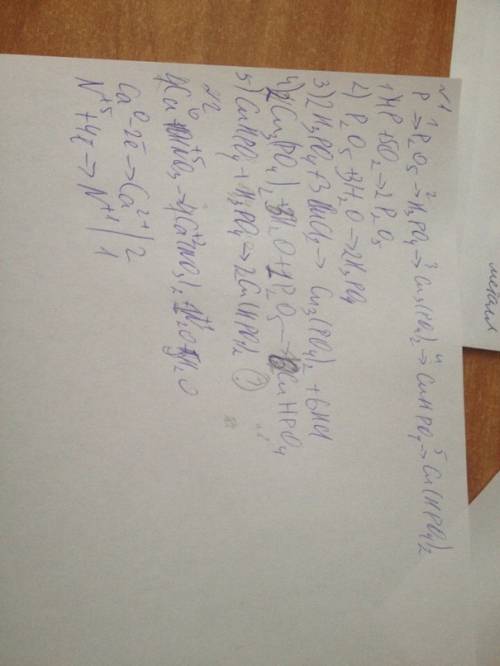 №1
P →¹ P₂O₅ →² H₃PO₄ →³ Cu₃(PO₄)₂ →⁴ CuHPO₄ →⁵ Cu(HPO₄)₂
1) 4P + 5O₂ → 2P₂O₅
2) P₂O₅ + 3H₂O → 2H₃PO₄
3) 2H₃PO₄ + 3CuCl₂ → Cu₃(PO₄)₂ + 6HCl
4) 2Cu₃(PO₄)₂ + 3H₂O + P₂O₅ → 6CuHPO₄
5) CuHPO₄ + H₃PO₄ → 2Cu(HPO₄)₂ (?)
№2
4Ca⁰ + 10HN⁺⁵O₃ → 4Ca⁺²(NO₃)₂ + N₂⁺¹O + 5H₂O
Ca⁰ - 2ē → Ca²⁺ | 2
N⁺⁵ + 4ē → N⁺¹ | 1